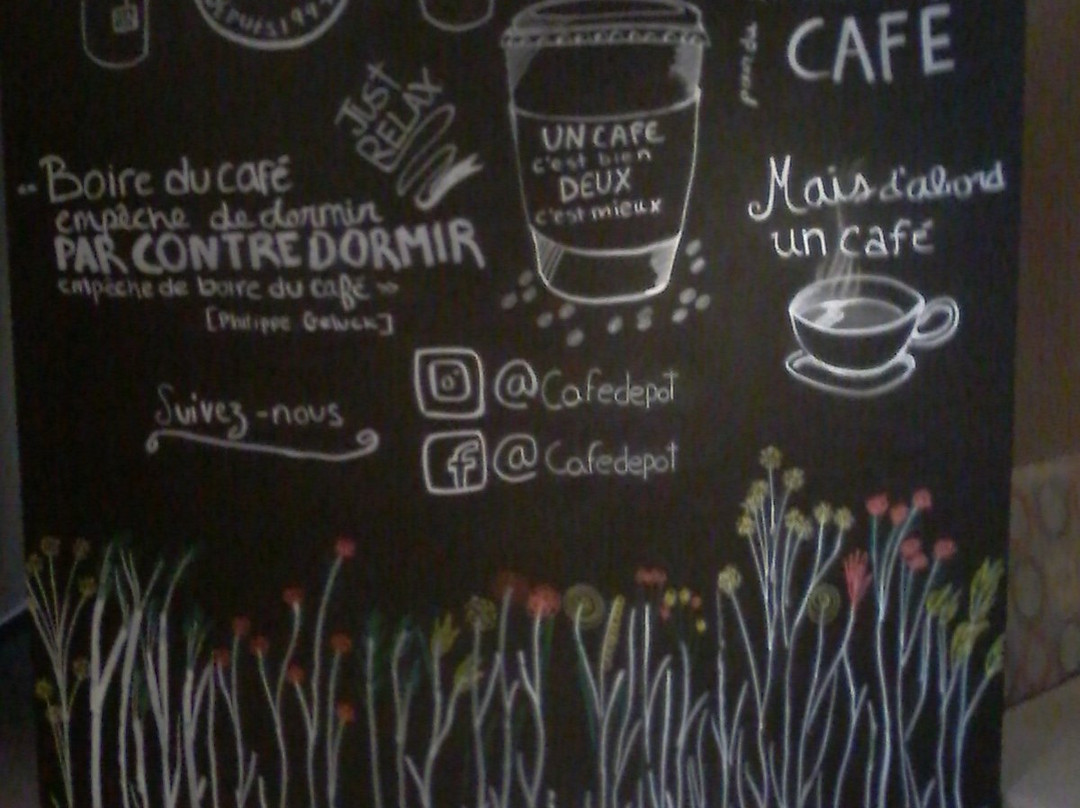 DEPUIS 199
CAFE
JUST
RELAX
UN CAFE
c'est bien
DEUX
c'est mieux
Mais d'abord
un café
"Boire du café
empêche de dormir
PAR CONTRE DORMIR
empêche de boire du café »
[Philippe Geluck]
Suivez-nous
@Cafedepot
@Cafedepot